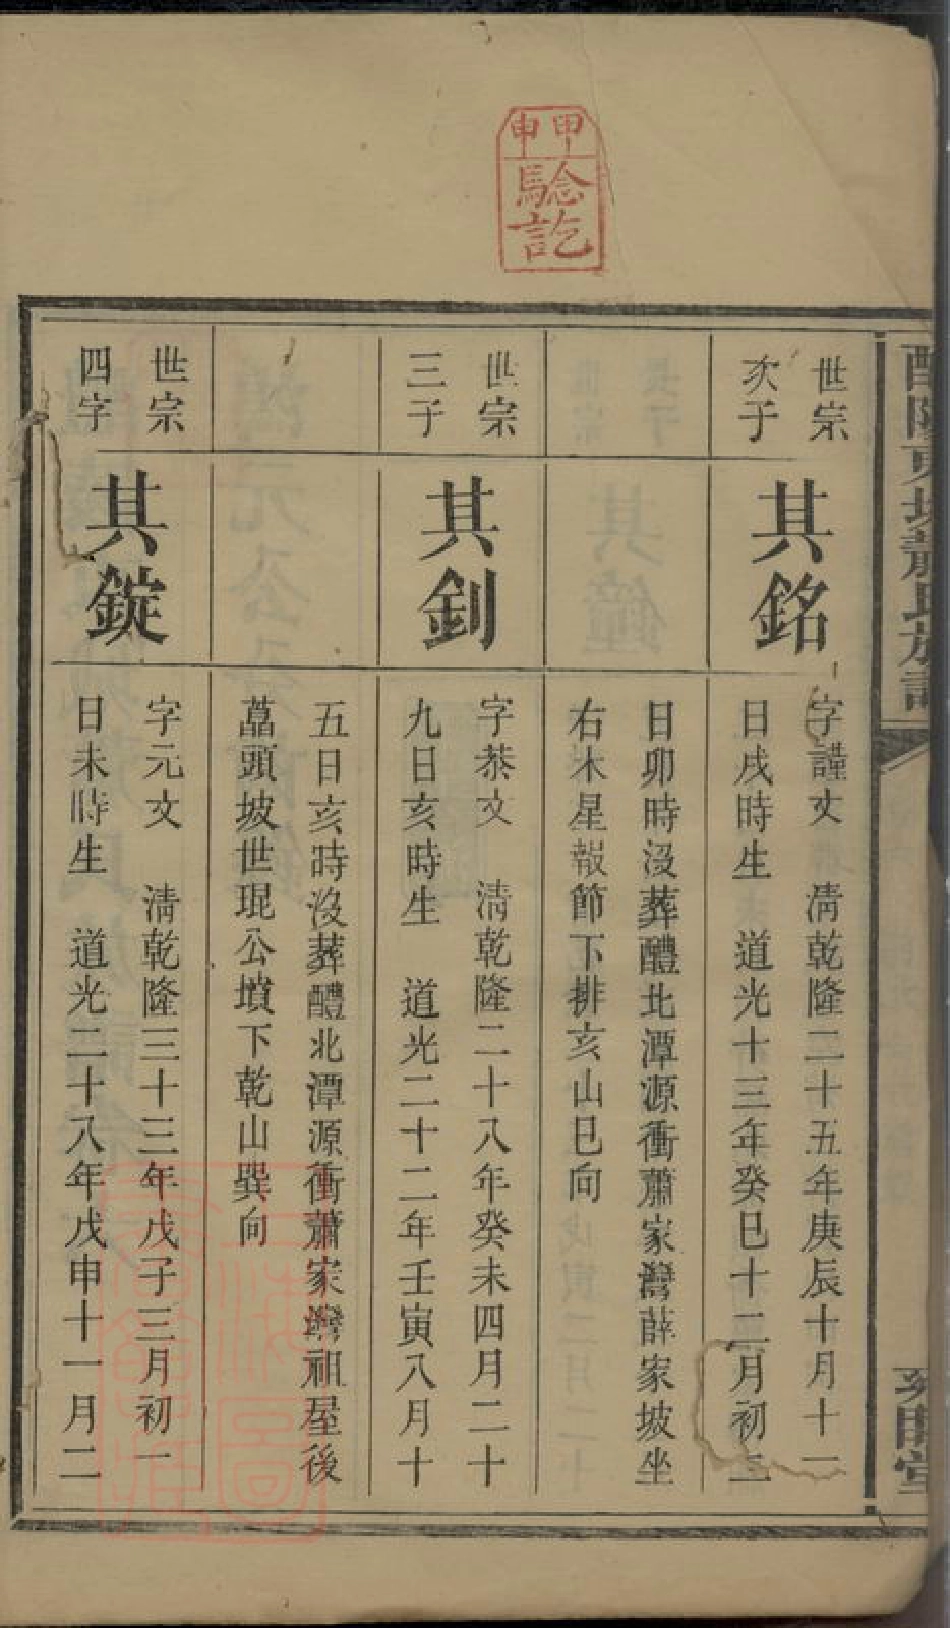 甲申
驗訖
世宗
次子
其銘
字謹文　清乾隆二十五年庚辰十月十一
日戌時生　道光十三年癸巳十二月初三
日卯時沒葬醴北潭源衝蕭家灣薛家坡坐
右木星報節下排亥山巳向
世宗
三子
其釗
字恭文　清乾隆二十八年癸未四月二十
九日亥時生　道光二十二年壬寅八月十
五日亥時沒葬醴北潭源衝蕭家灣祖屋後
藠頭坡世琨公墳下乾山巽向
世宗
四字
其錠
字元文　清乾隆三十三年戊子三月初一
日未時生　道光二十八年戊申十一月二